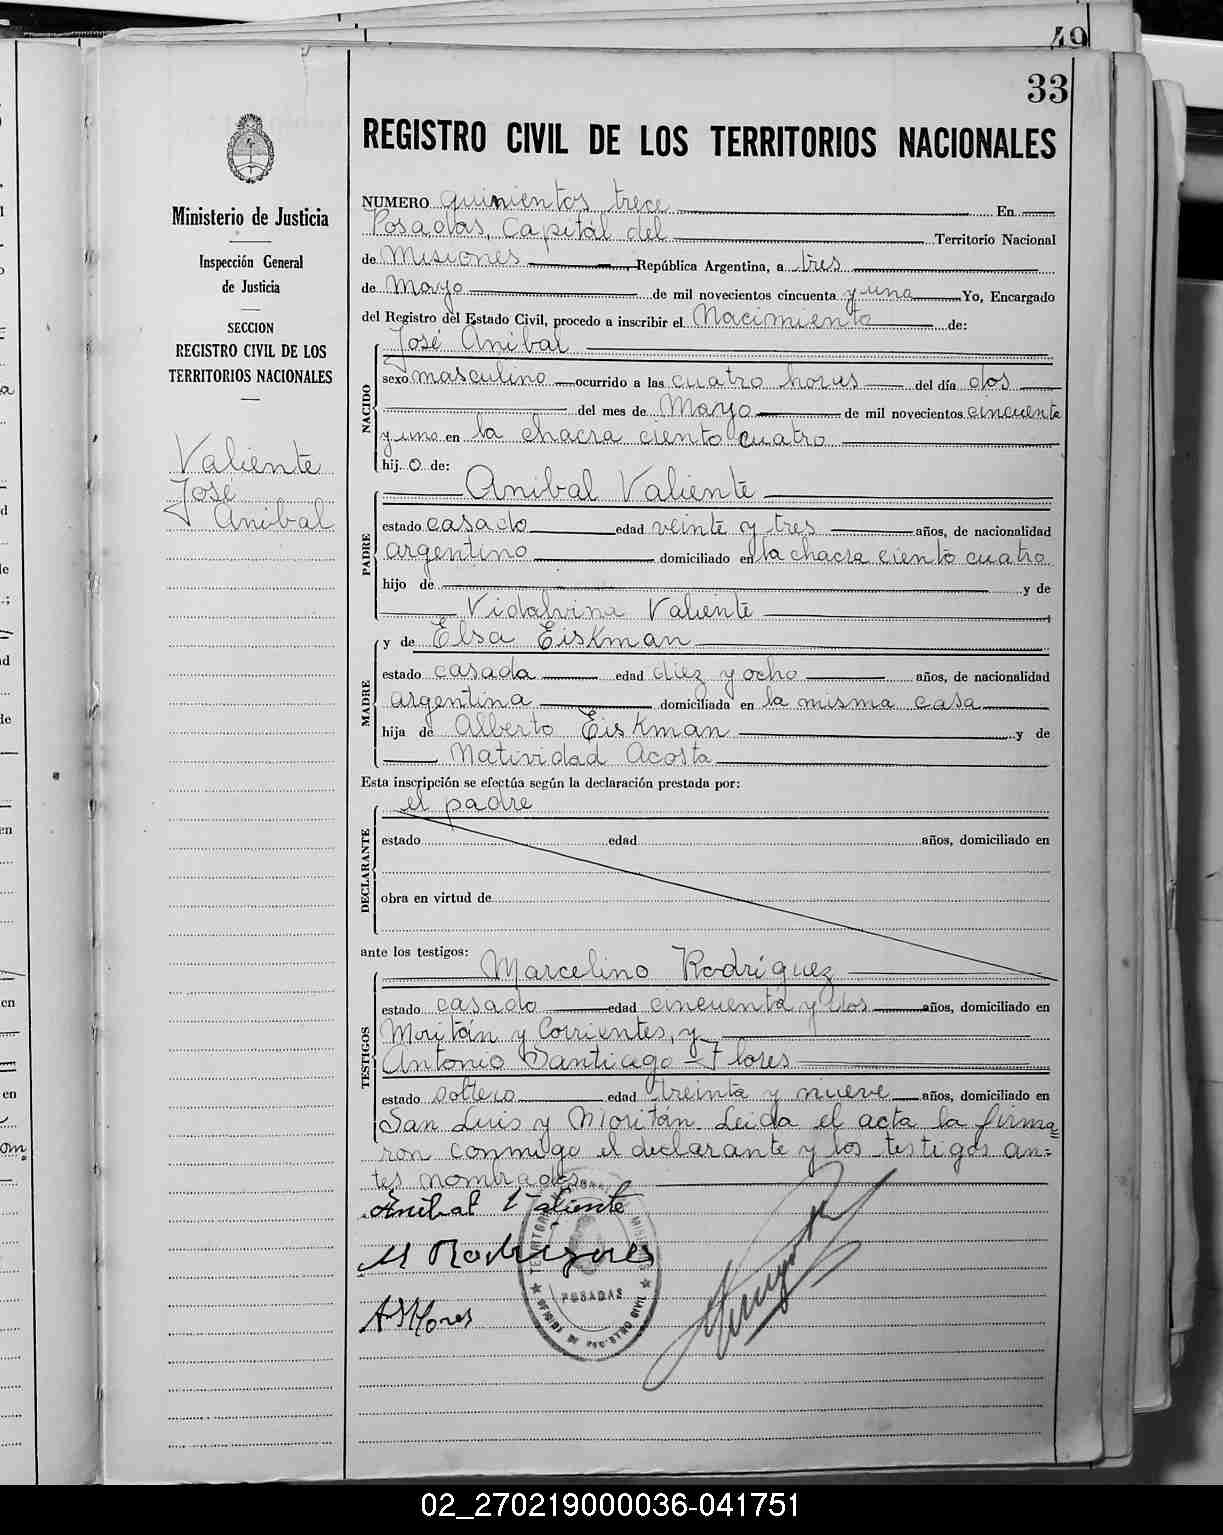 49
33
REGISTRO CIVIL DE LOS TERRITORIOS NACIONALES
Ministerio de Justicia
Inspección General
de Justicia
SECCION
REGISTRO CIVIL DE LOS
TERRITORIOS NACIONALES
Valiente
José
Anibal
NUMERO quinientos trece En
Posadas, Capitál del Territorio Nacional
de Misiones, República Argentina, a tres
de Mayo de mil novecientos cincuenta y uno Yo, Encargado
del Registro del Estado Civil, procedo a inscribir el Nacimiento de:
NACIDO
José Anibal
sexo masculino ocurrido a las cuatro horas del día dos
del mes de Mayo de mil novecientos cincuenta
y uno en la chacra ciento cuatro
hij o de:
PADRE
Anibal Valiente
estado casado edad veinte y tres años, de nacionalidad
argentino domiciliado en la chacra ciento cuatro
hijo de y de
Vidalvina Valiente
MADRE
y de Elsa Eiskman
estado casada edad diez y ocho años, de nacionalidad
argentina domiciliada en la misma casa
hija de Alberto Eiskman y de
Natividad Acosta
Esta inscripción se efectúa según la declaración prestada por:
DECLARANTE
el padre
estado edad años, domiciliado en
obra en virtud de
ante los testigos:
TESTIGOS
Marcelino Rodríguez
estado casado edad cincuenta y dos años, domiciliado en
Moritán y Corrientes, y
Antonio Santiago Flores
estado soltero edad treinta y nueve años, domiciliado en
San Luis y Moritán. Leida el acta la firma=
ron conmigo el declarante y los testigos an=
tes nombrados
Anibal Valiente
M Rodrigues
A S Flores
POSADAS
OFICINA DE REGISTRO CIVIL
02_270219000036-041751